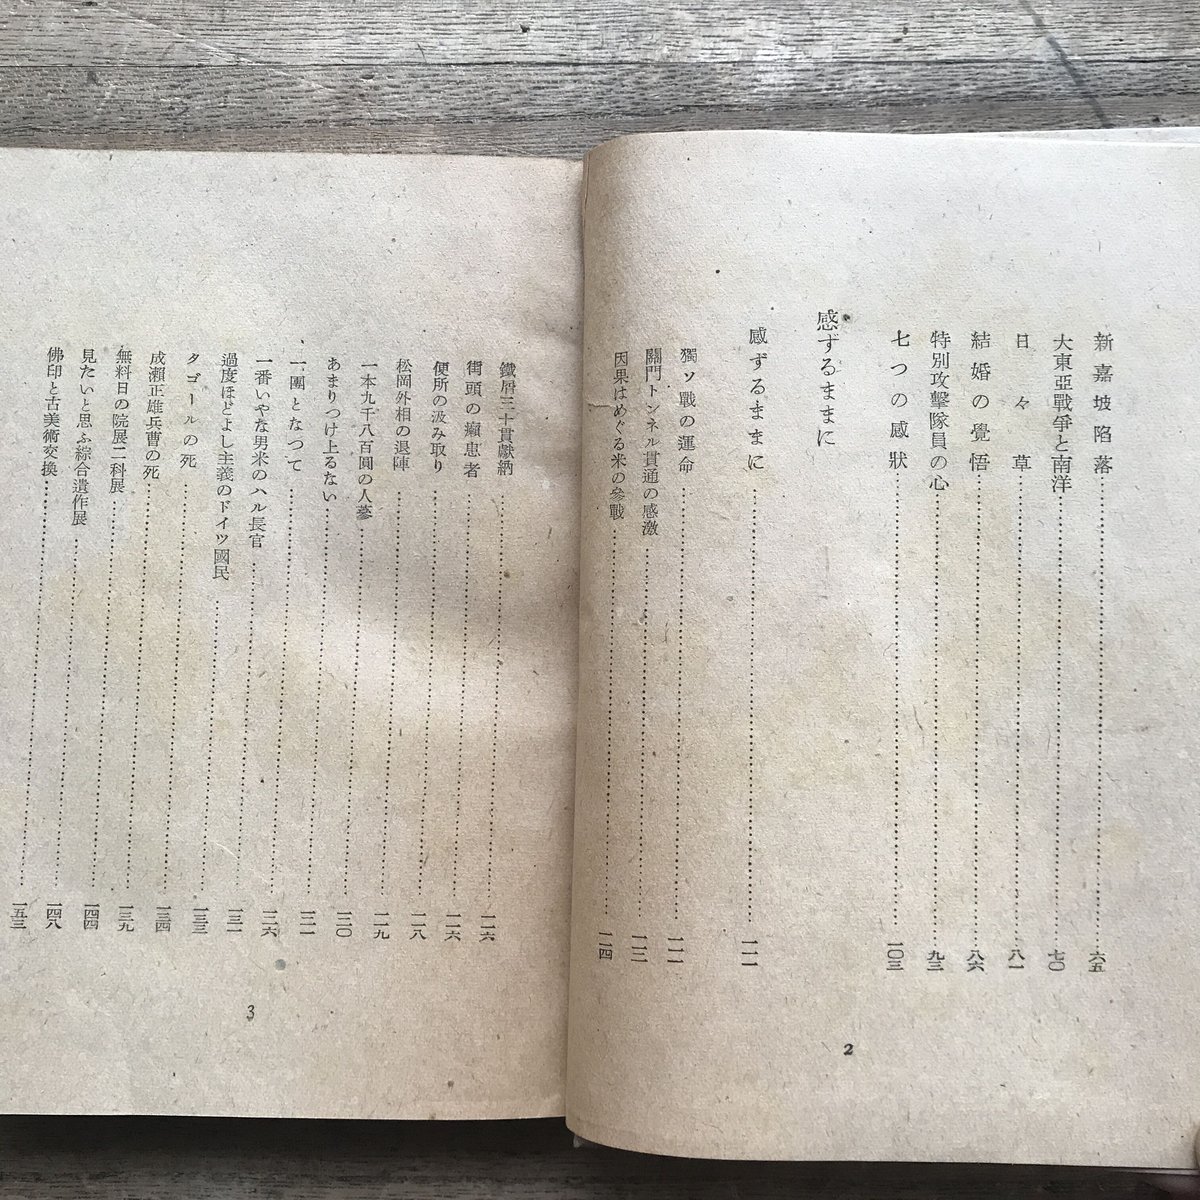 新嘉坡陷落……六五
大東亞戰爭と南洋……七〇
日々草……八一
結婚の覺悟……八六
特別攻擊隊員の心……九三
七つの感狀……一〇三
感ずるままに
感ずるままに……一一一
獨ソ戰の運命……一一一
關門トンネル貫通の感激……一一三
因果はめぐる米の參戰……一一四
2
鐵屑三十貫獻納……一一六
街頭の癩患者……一一六
便所の汲み取り……一一六
松岡外相の退陣……一一八
一本九千八百圓の人蔘……一一九
あまりつけ上るない……一二〇
一團となつて……一二一
一番いやな男米のハル長官……一二六
過度ほどよし主義のドイツ國民……一三一
タゴールの死……一三三
成瀨正雄兵曹の死……一三四
無料日の院展二科展……一三九
見たいと思ふ綜合遺作展……一四四
佛印と古美術交換……一四八
一五三
3